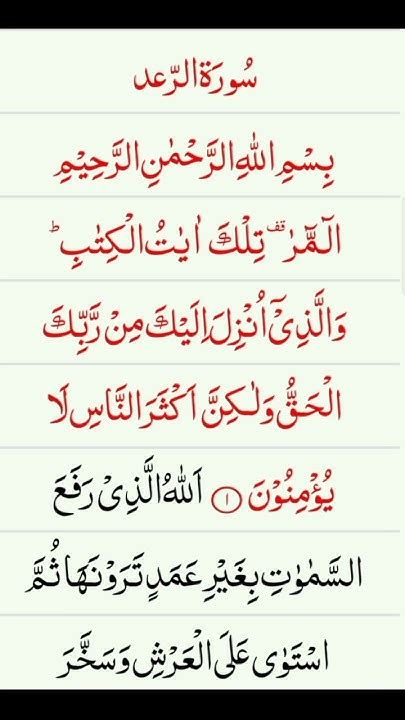 سُورَةُ الرَّعد
بِسْمِ اللّٰهِ الرَّحْمٰنِ الرَّحِيْمِ
الٓمّٓرٰ ۫ تِلْكَ اٰيٰتُ الْكِتٰبِ ؕ
وَالَّذِيْۤ اُنْزِلَ اِلَيْكَ مِنْ رَّبِّكَ
الْحَقُّ وَلٰكِنَّ اَكْثَرَ النَّاسِ لَا
يُؤْمِنُوْنَ ۝۱ اَللّٰهُ الَّذِيْ رَفَعَ
السَّمٰوٰتِ بِغَيْرِ عَمَدٍ تَرَوْنَهَا ثُمَّ
اسْتَوٰى عَلَى الْعَرْشِ وَسَخَّرَ